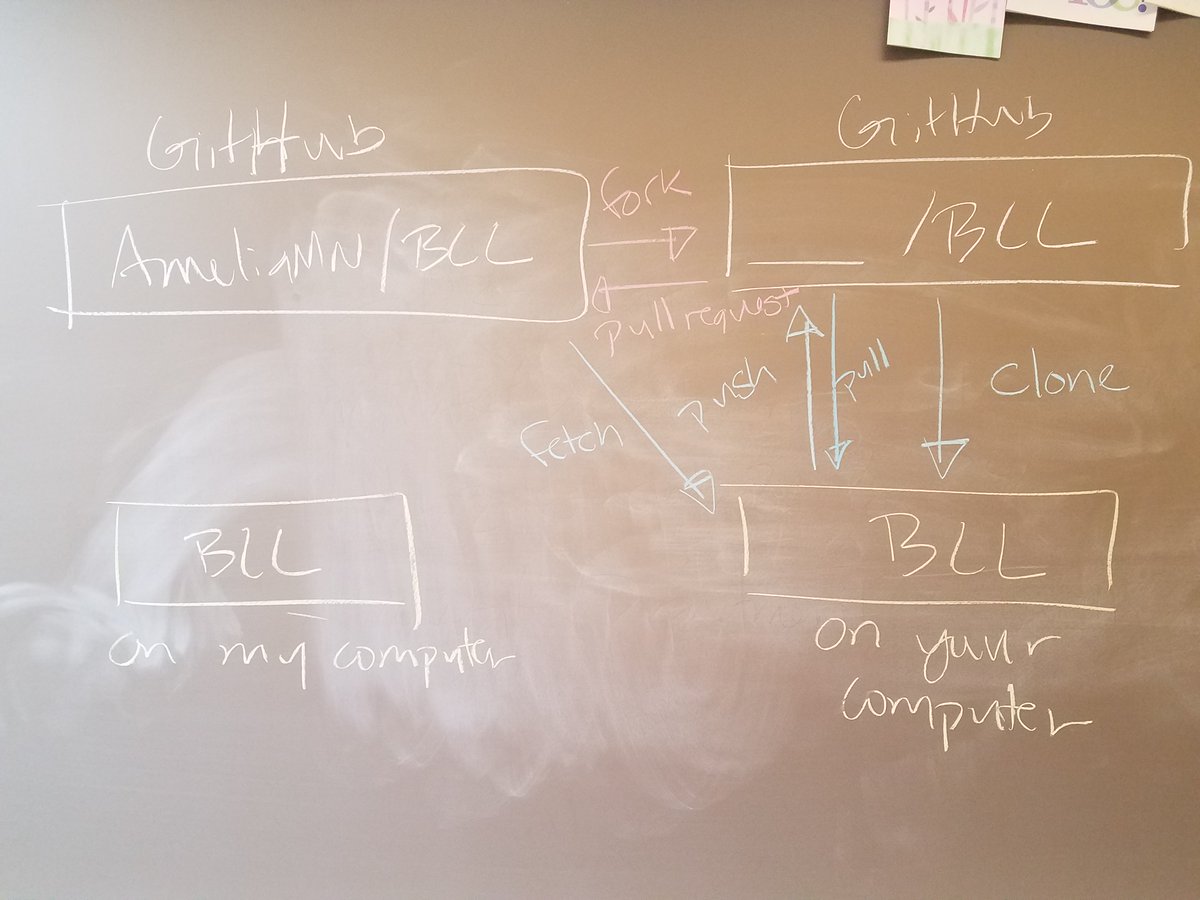 GitHub
AmeliaMN/BLL
fork
pull request
GitHub
___/BLL
push
pull
clone
fetch
BLL
on my computer
BLL
on your
computer